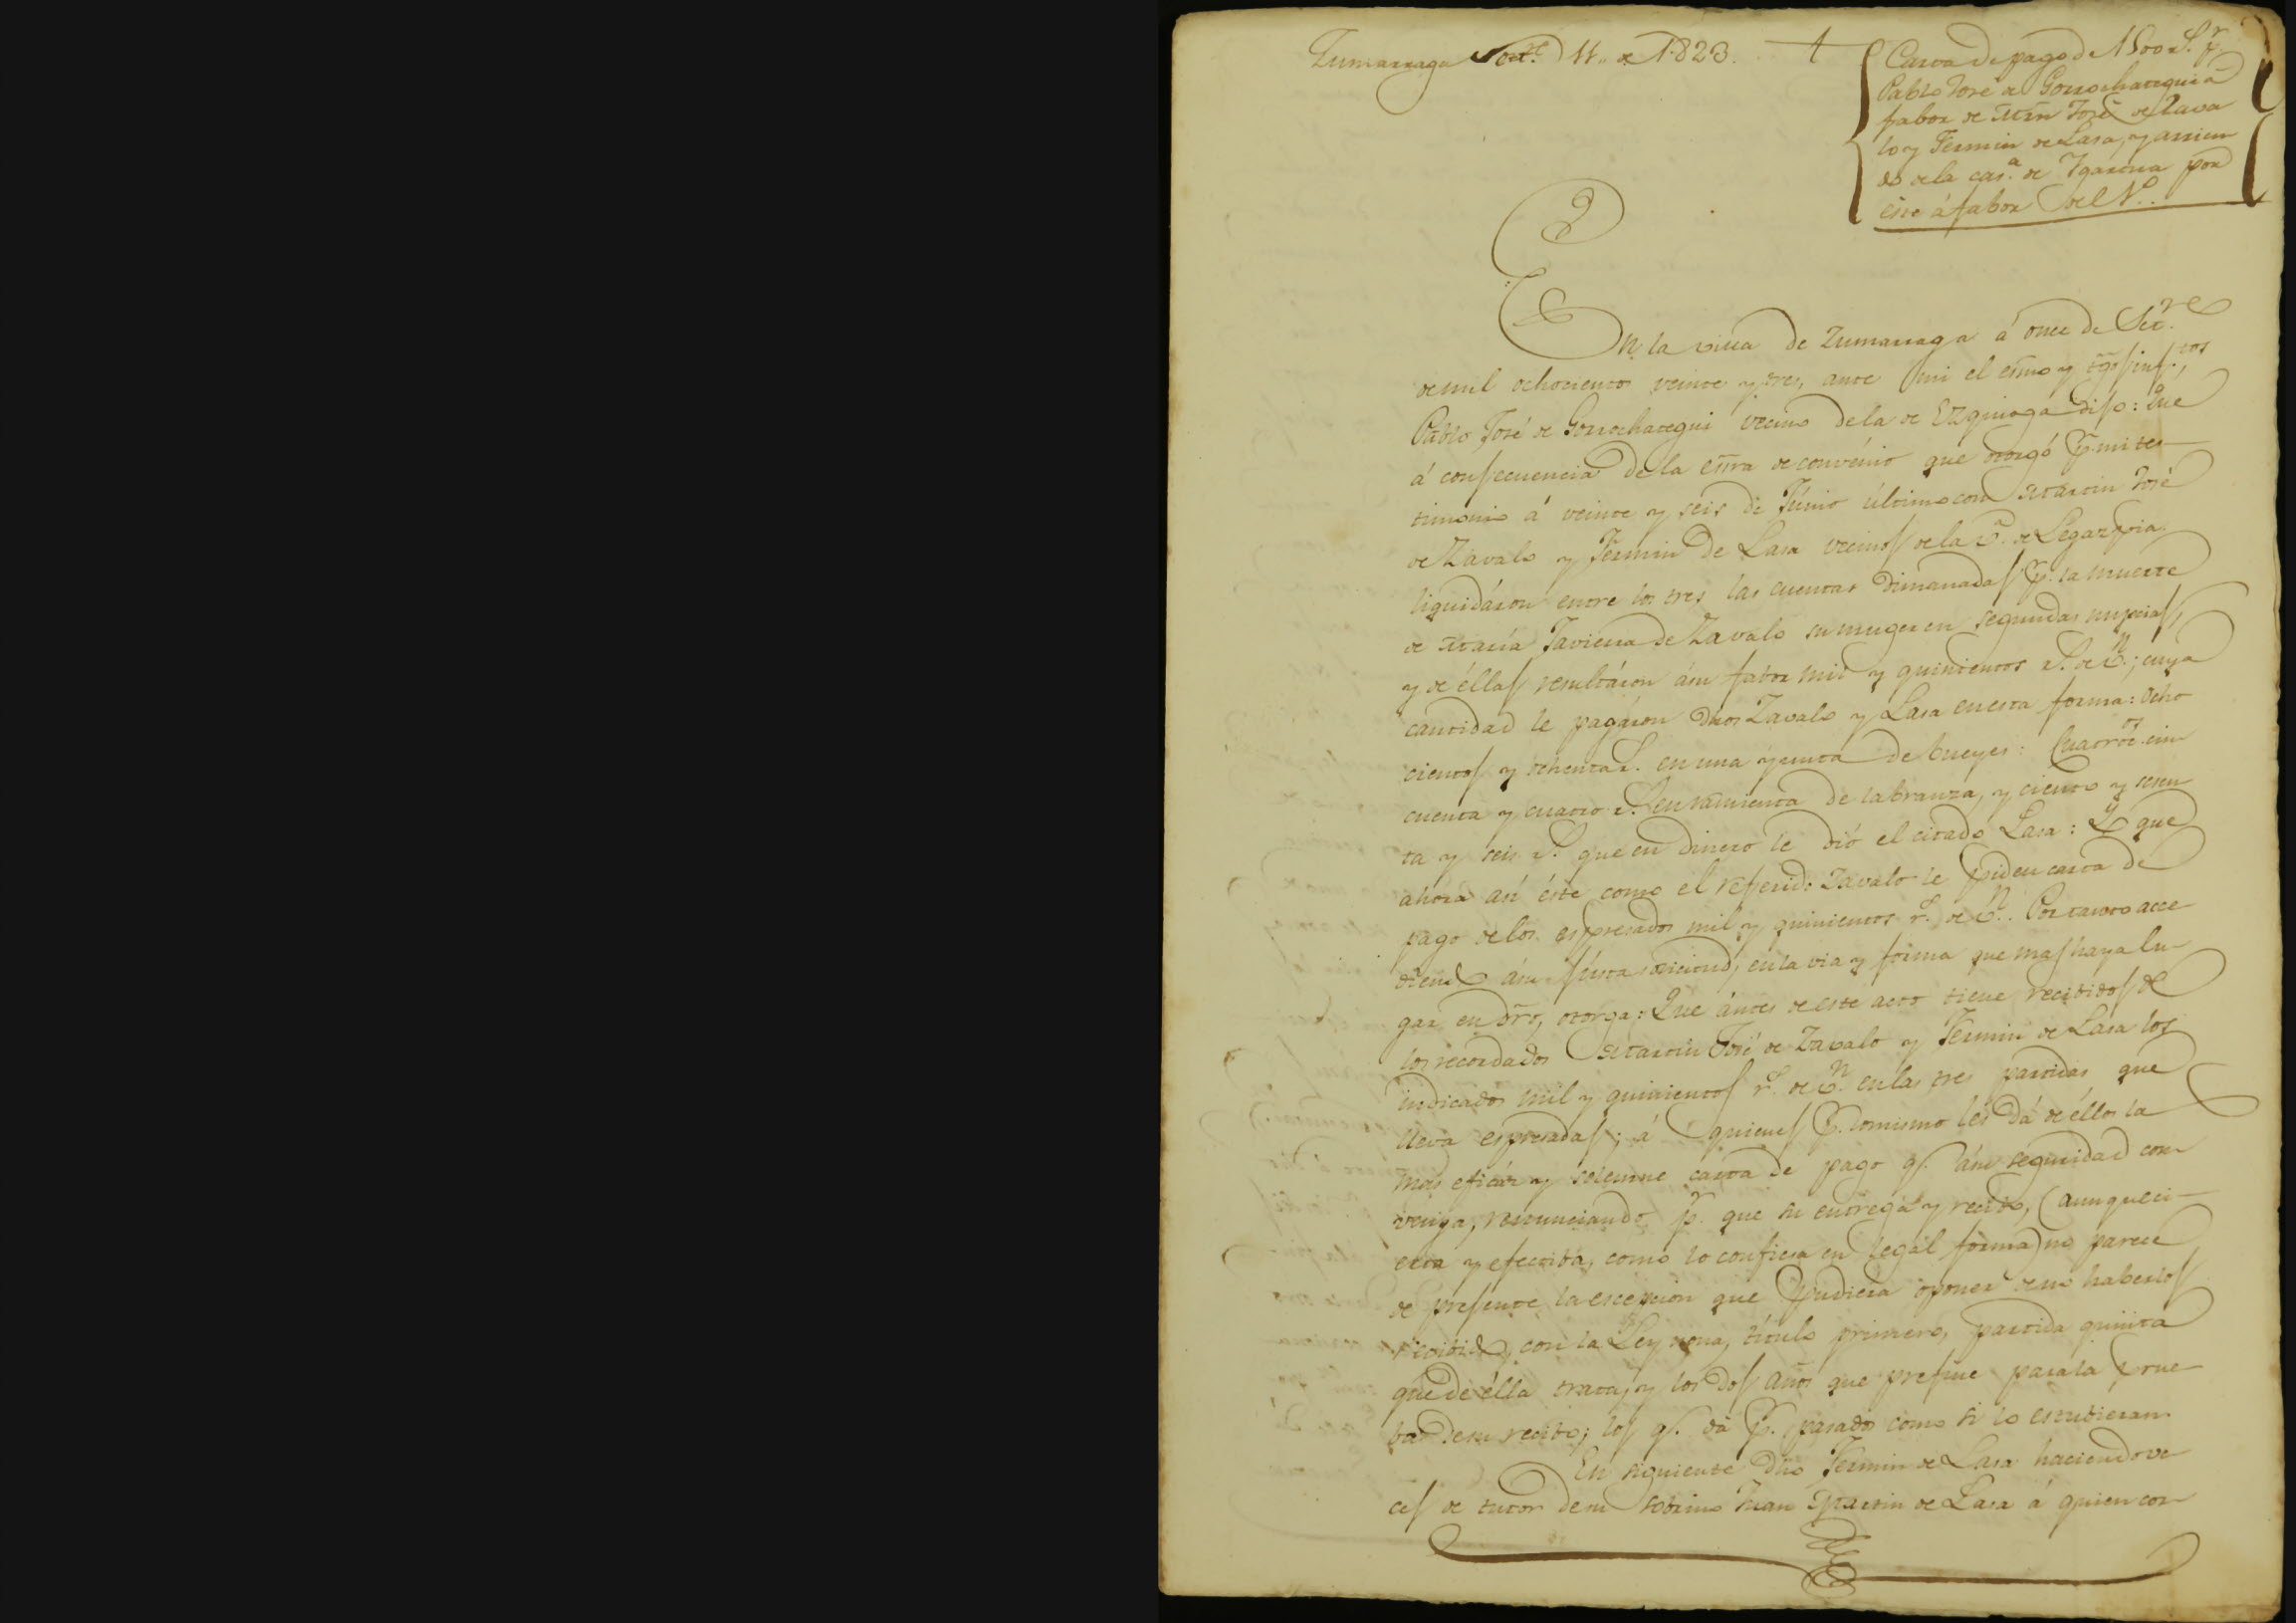 Zumarraga Set.re 11. de 1823.
Carta de pago de 1500 r.s p.r
Pablo José de Gorrochategui á
fabor de Mrn José de Zava
lo y Fermin de Lasa, y arrien
do de la cas.a de Ygartua por
éste á fabor del 1.o.
En la villa de Zumarraga á once de Set.re
de mil ochocientos veinte y tres, ante mi el esno y tgos infos.tos,
Pablo José de Gorrochategui vecino de la de Ezquioga dijo: Que
á consecuencia de la esnra de convénio que otorgó p.r mi tes-
timonio á veinte y seis de Júnio último con Martin José
de Zavalo y Fermin de Lasa vecinos de la v.a de Legazpia
liquidáron entre los tres las cuentas dimanadas p.r la muerte
de María Javiera de Zavalo su muger en segundas nupcias,
y de éllas resultáron á su fabor mil y quinientos r.s de v.n; cuya
cantidad le pagáron dhos Zavalo y Lasa en esta forma: Ocho
cientos y ochenta r.s en una yunta de bueyes: Cuatroc.os cin
cuenta y cuatro r.s en rramienta de labranza, y ciento y sesen
ta y seis r.s que en dinero le dió el citado Lasa: Y que
ahora así éste como el referido Zavalo le piden carta de
pago de los espresados mil y quinientos r.s de v.n. Por tanto acce
diendo á su justa solicitud, en la via y forma que mas haya lu-
gar en dro, otorga: Que ántes de este acto tiene recibidos de
los recordados Martin José de Zavalo y Fermin de Lasa los
indicados mil y quinientos r.s de v.n en las tres partidas que
lleva espresadas; á quienes p.r lo mismo les dá de éllos la
mas eficáz y solemne carta de pago q.e á su seguridad con
venga, renunciando p.r que su entrega y recibo, (aunque ci-
erta y efectiba, como lo confiesa en legál forma) no parece
de presente la escepcion que pudiera oponer de no haberlos
recibido, con la Ley nona, título primero, partida quinta
que de élla trata, y los dos años que prefine para la prue
ba de su recibo; los q.e dá p.r pasados como si lo estubieran.
En siguiente dho Fermin de Lasa haciendo ve
ces de tutor de su sobrino Juan Martin de Lasa á quien cor